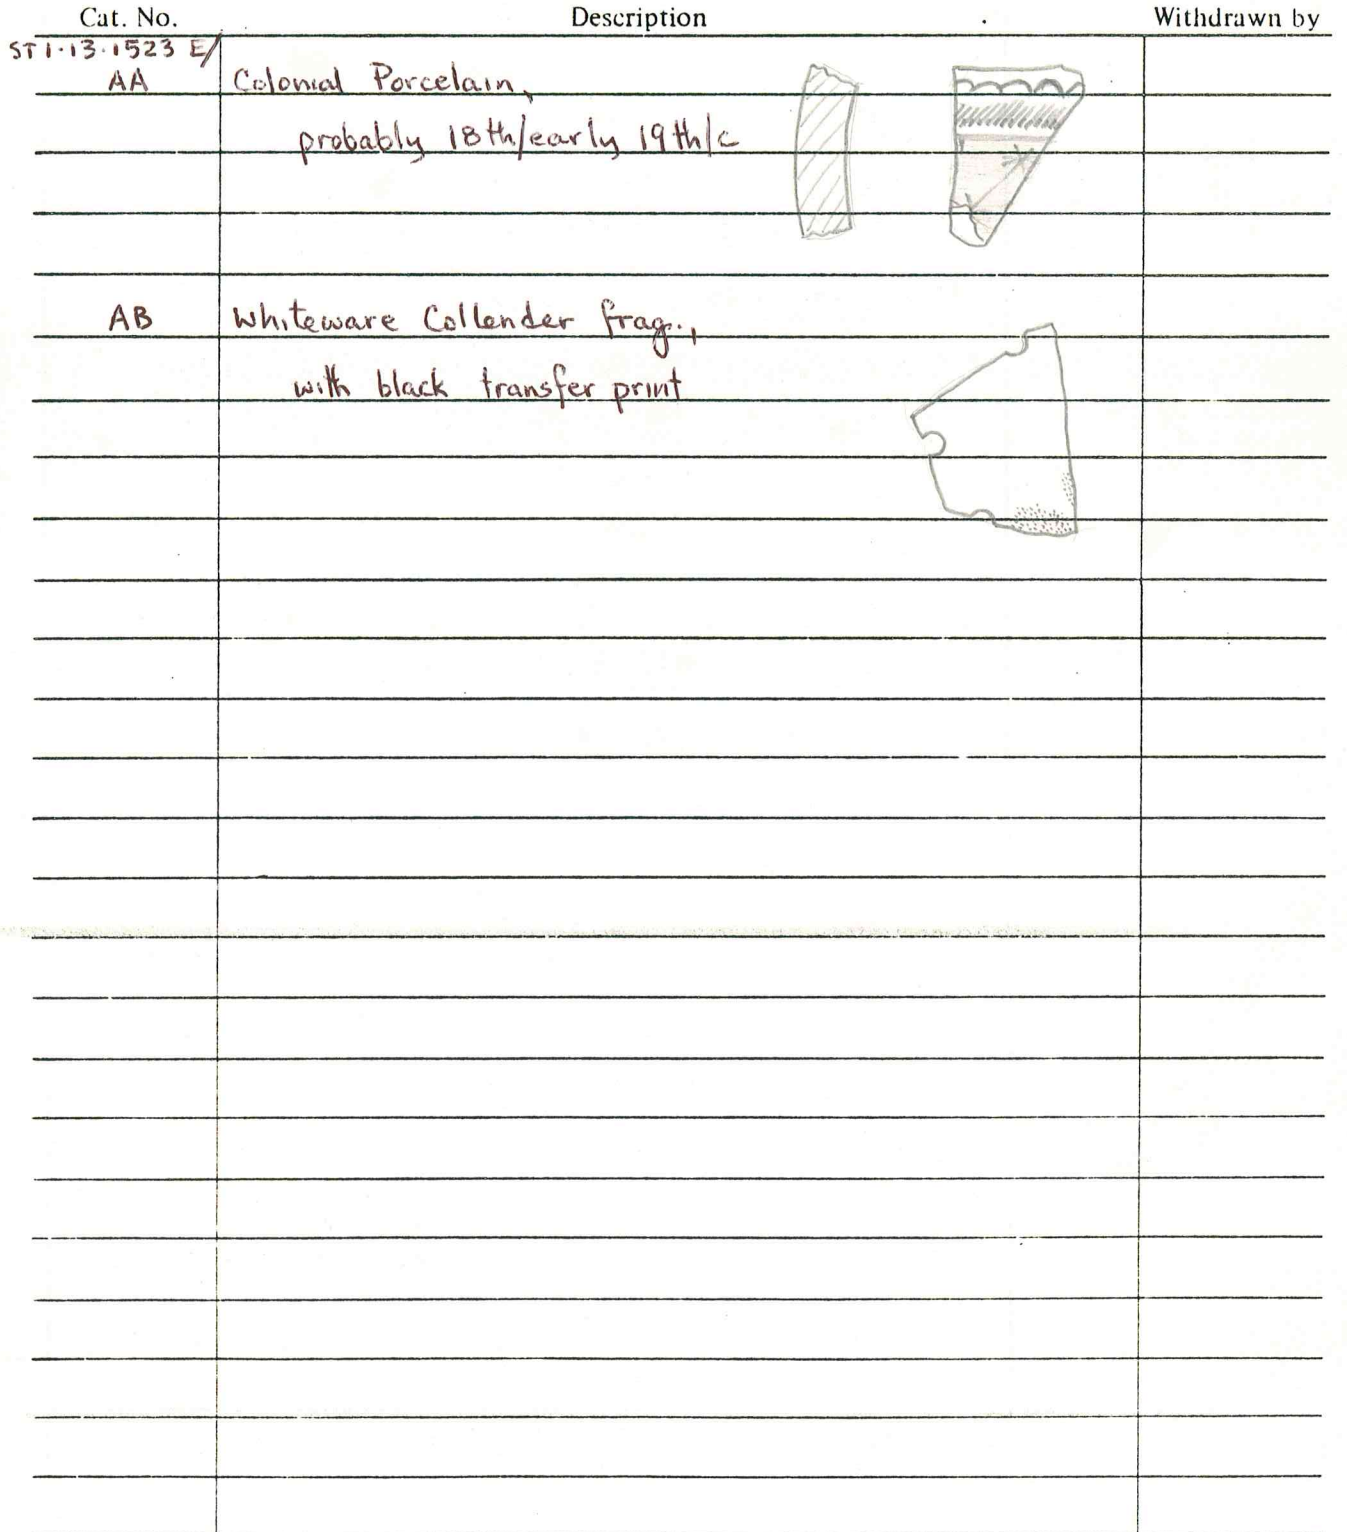 Cat. No. Description Withdrawn by
ST1·13·1523 E/
AA Colonial Porcelain,
probably 18th/early 19th/c
AB Whiteware Collender frag.,
with black transfer print